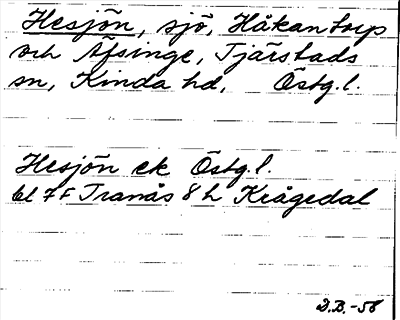 Hesjön, sjö, Håkantorp
och Åfsinge, Tjärstads
sn, Kinda hd, Östg.l.
Hesjön ek Östg.l.
bl 7F Tranås 8 h Krågedal
D.B.-58